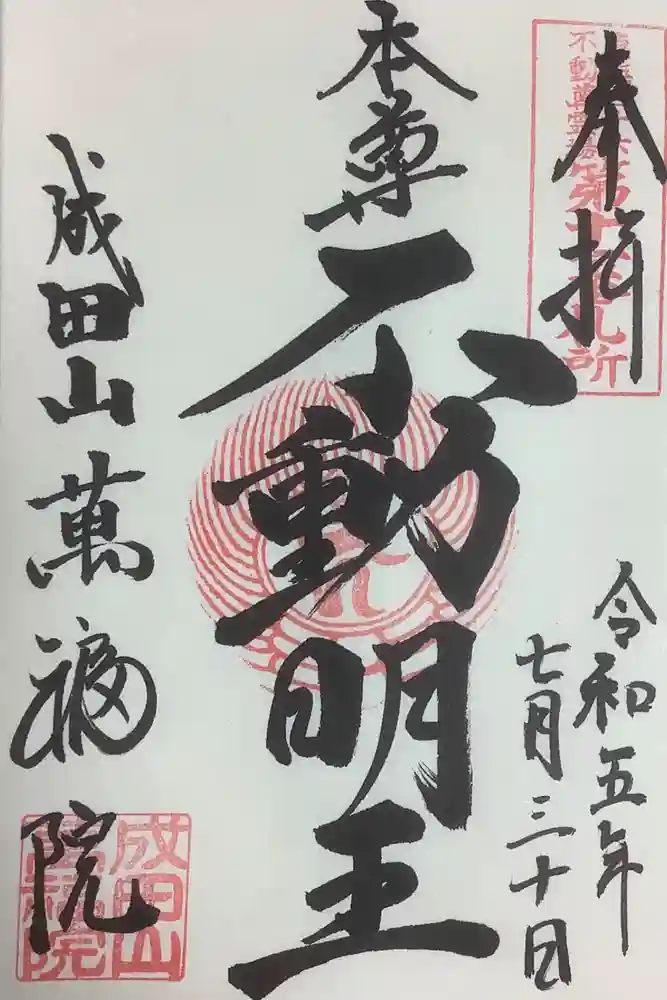 奉拝
不動尊霊場
本尊
不動明王
令和五年
七月三十日
成田山萬福院
成田山
萬福院